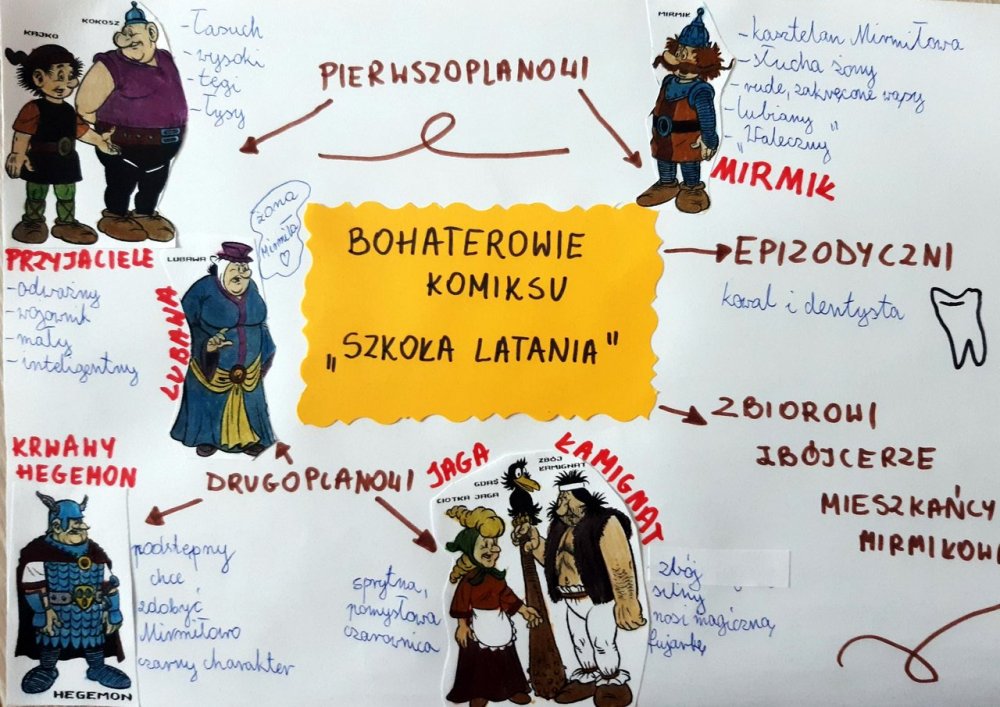 KAJKO
KOKOSZ
-Łasuch
-wysoki
-tęgi
-łysy
PIERWSZOPLANOWI
MIRMIŁ
-kasztelan Mirmiłowa
-słucha żony
-rude, zakręcone wąsy
-lubiany
-„Waleczny”
MIRMIŁ
PRZYJACIELE
-odważny
-wojownik
-mały
-inteligentny
LUBAWA
żona
Mirmiła
LUBANA
BOHATEROWIE
KOMIKSU
„SZKOŁA LATANIA"
EPIZODYCZNI
kowal i dentysta
ZBIOROWI
ZBÓJCERZE
MIESZKAŃCY
MIRMIŁOW
KRWAWY
HEGEMON
HEGEMON
podstępny
chce
zdobyć
Mirmiłowo
czarny charakter
DRUGOPLANOWI
JAGA
ŁAMIGNAT
CIOTKA JAGA
GDAŚ
ZBÓJ
ŁAMIGNAT
sprytna,
pomysłowa
czarownica
zbój
silny
nosi magiczną
fujarkę